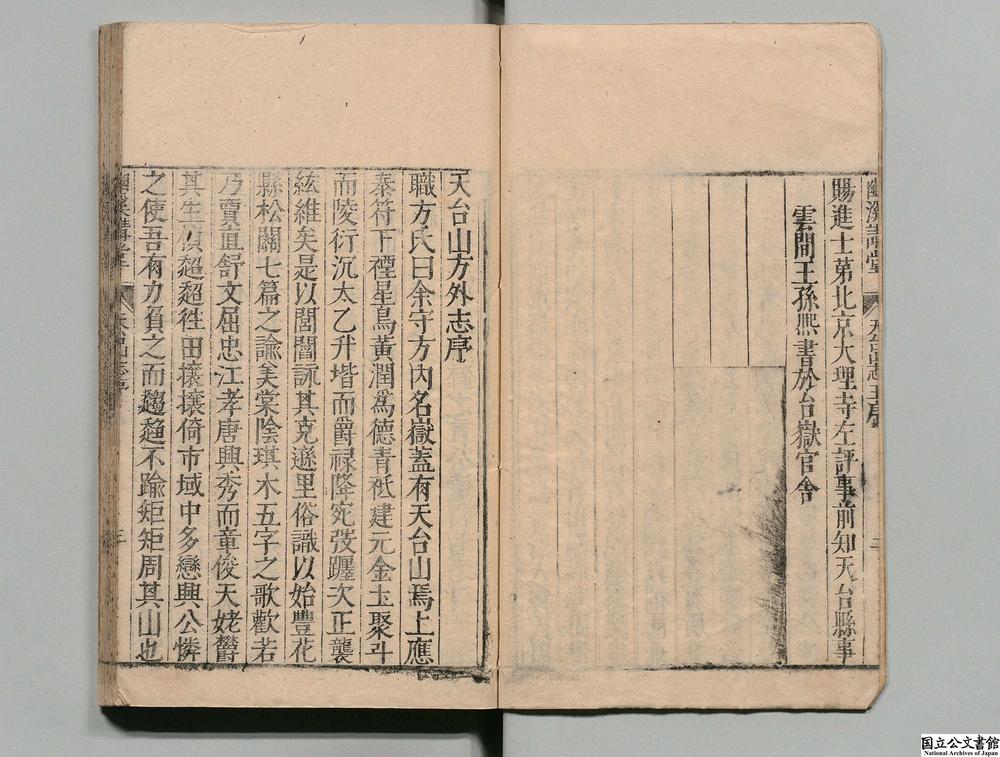 賜進士第北京大理寺左評事前知天台縣事
雲間王孫熈書於台嶽官舍
天台山方外志序
職方氏曰余守方內名嶽蓋有天台山焉上應
泰符下禋星鳥黃潤爲德青祗建元金土聚斗
而陵衍沉太乙升堦而爵禄降宛
次正襲
紘維矣是以閭閻詠其克遜里俗識以始豐花
縣松關七篇之諭美棠陰琪木五字之歌歡若
乃賣
舒文屈忠江孝唐興秀而童俊天姥欝
其生
超超徃田攘攘倚市域中多戀興公憐
之使吾有力負之而趨趨不踰矩矩周其山也
國立公文書館
National Archives of Japan